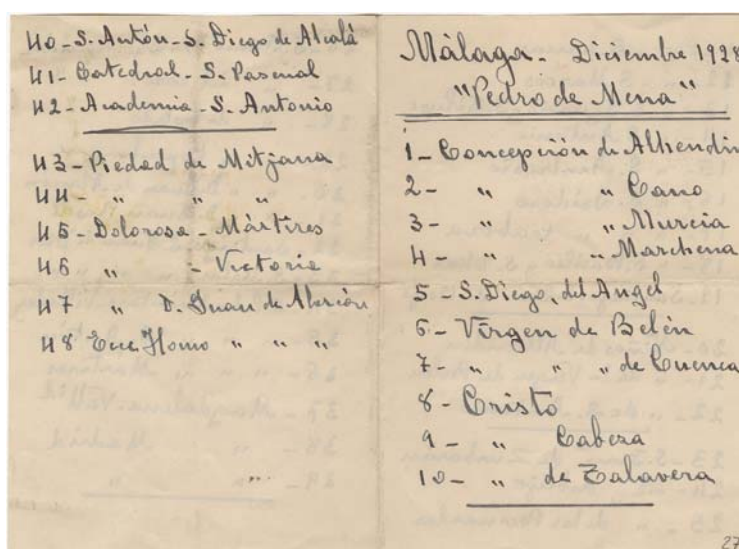 40 - S. Antón - S. Diego de Alcalá
41 - Catedral - S. Pascual
42 - Academia - S. Antonio
43 - Piedad de Mitjana
44 - " " "
45 - Dolorosa - Mártires
46 " - Victoria
47 " D. Juan de Alarcón
48 Ecce Homo " " "
Málaga - Diciembre 1928
"Pedro de Mena"
1 - Concepción de Alhendin
2 - " " Cano
3 - " " Murcia
4 - " " Marchena
5 - S. Diego, del Angel
6 - Virgen de Belén
7 - " " de Cuenca
8 - Cristo
9 - " Cabeza
10 - " de Talavera
27